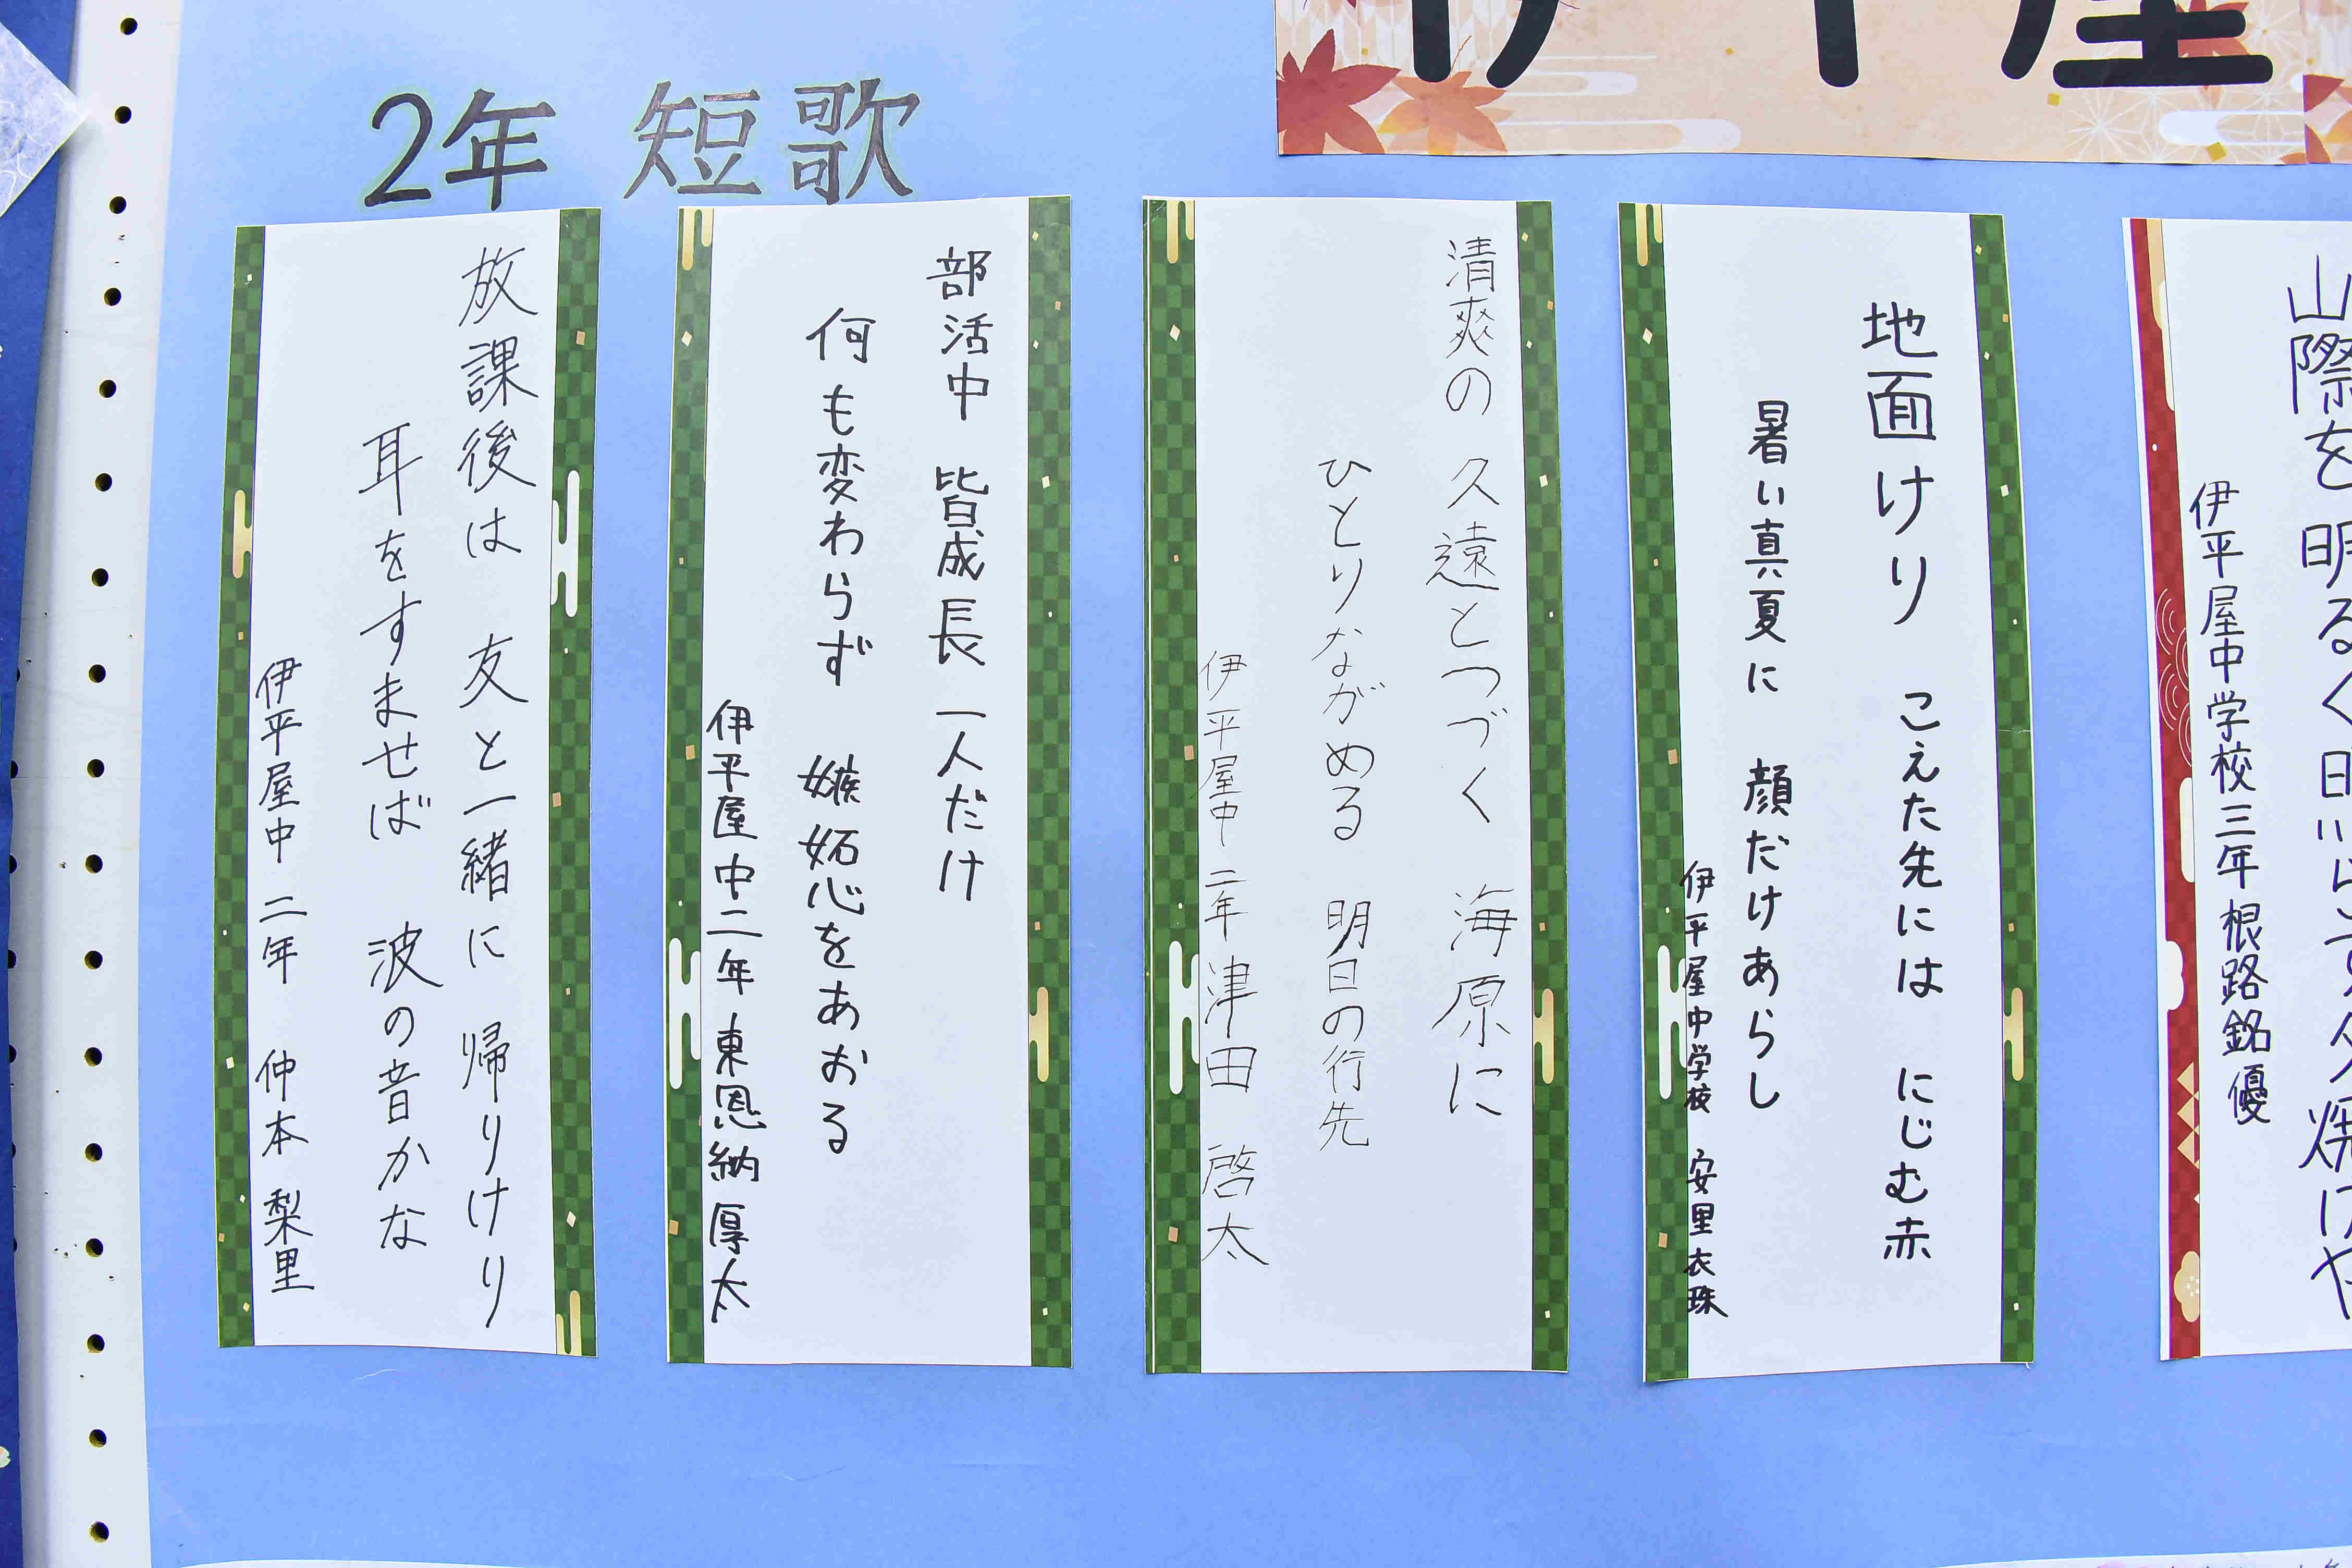 2年 短歌
山際を 明るく日
伊平屋中学校三年 根路銘 優
地面けり こえた先には にじむ赤
暑い真夏に 顔だけあらし
伊平屋中学校 安里衣珠
清爽の 久遠とつづく 海原に
ひとりながめる 明日の行先
伊平屋中 二年 津田 啓太
部活中 皆成長 一人だけ
何も変わらず 嫉妬心をあおる
伊平屋中二年 東恩納 厚太
放課後は 友と一緒に 帰りけり
耳をすませば 波の音かな
伊平屋中 二年 仲本 梨里